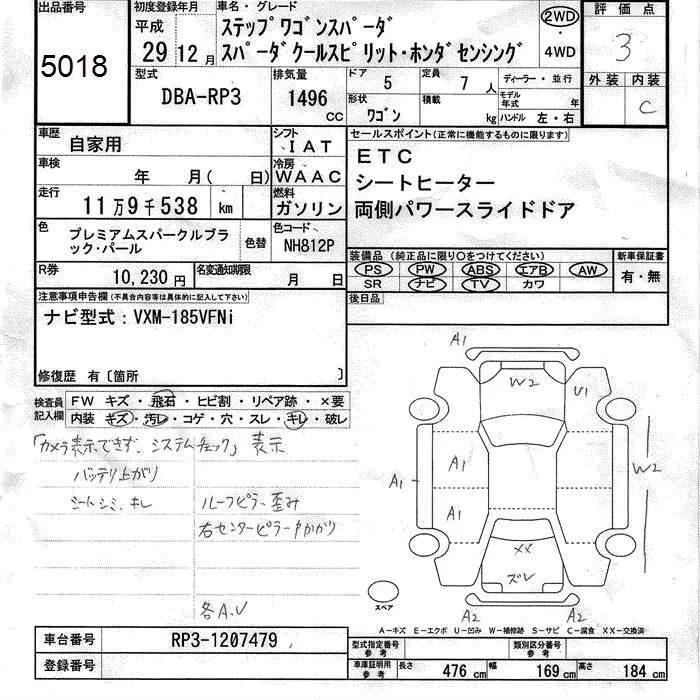 出品番号
5018
初度登録年月
平成
29 12月
車名・グレード
ステップワゴンスパーダ
スパーダクールスピリット・ホンダセンシング
2WD
・
4WD
評価点
3
外装 内装
C
型式
DBA-RP3
排気量
1496
CC
ドア
5
形状
ワゴン
定員
7 人
積載
kg
ディーラー・並行
モデル年式 年
ハンドル 左・右
車歴
自家用
シフト
IAT
車検
年 月( 日)
冷房
WAAC
走行
11万9千538 km
燃料
ガソリン
色
プレミアムスパークルブラック・パール
色替
色コード
NH812P
R券
10,230円
名変通知期限
月 日
セールスポイント(正常に機能するものに限ります)
ETC
シートヒーター
両側パワースライドドア
装備品 (純正品に限り○をつけてください)
PS PW ABS エアB AW
SR ナビ TV カワ
新車保証書
有・無
後日品
注意事項申告欄(不具合内容等は具体的に記入して下さい)
ナビ型式:VXM-185VFNi
修復歴 有〔箇所 〕
検査員記入欄
FW キズ・飛石・ヒビ割・リペア跡・×要
内装 キズ・汚レ・コゲ・穴・スレ・キレ・破レ
「カメラ表示できず、システムチェック」表示
バッテリ上がり
シートシミ、キレ
ルーフピラー歪み
右センターピラー
各A、U
A1
W2
U1
A1
A1
A1
W2
XX
ズレ
A2
A2
スペア
A-キズ E-エクボ U-凹み W-補修跡 S-サビ C-腐食 XX-交換済
車台番号
RP3-1207479
登録番号
型式指定番号
参考
類別区分番号
参考
車庫証明用
参考
長さ 476 cm 幅 169 cm 高さ 184 cm